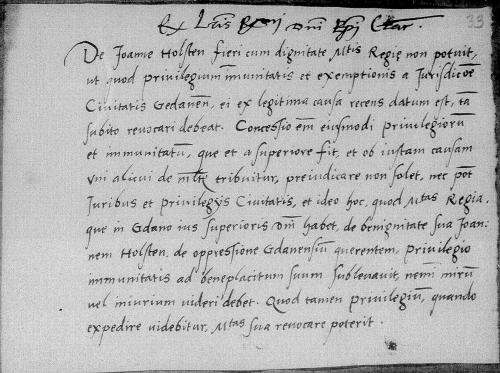 Ex Lris Rxmi Dni Epi Clar.
33
De Joanne Holsten fieri cum dignitate Mtis Regię non potuit,
ut quod privilegium īmunitatis et exemptionis a Jurisdicōe
Civitatis Gedanen̄, ei ex legitima causa recens datum est, tā
subito revocari debeat. Concessio em̄ eiusmodi privilegiorū
et immunitatū, que et a superiore fit, et ob iustam causam
vni alicui de tribuitur, preiudicare non solet, nec pōt
Juribus et privilegijs Civitatis, et ideo hoc, quod Mtas Regia,
que in Gdano ius superioris Dnī habet, de benignitate sua Joan:
nem Holsten, de oppressione Gdanensiū querentem, privilegio
immunitatis ad beneplacitum suum sublevavit, nemī mirū
vel iniurium videri debet. Quod tamen privilegiū, quando
expedire videbitur, Mtas sua revocare poterit.